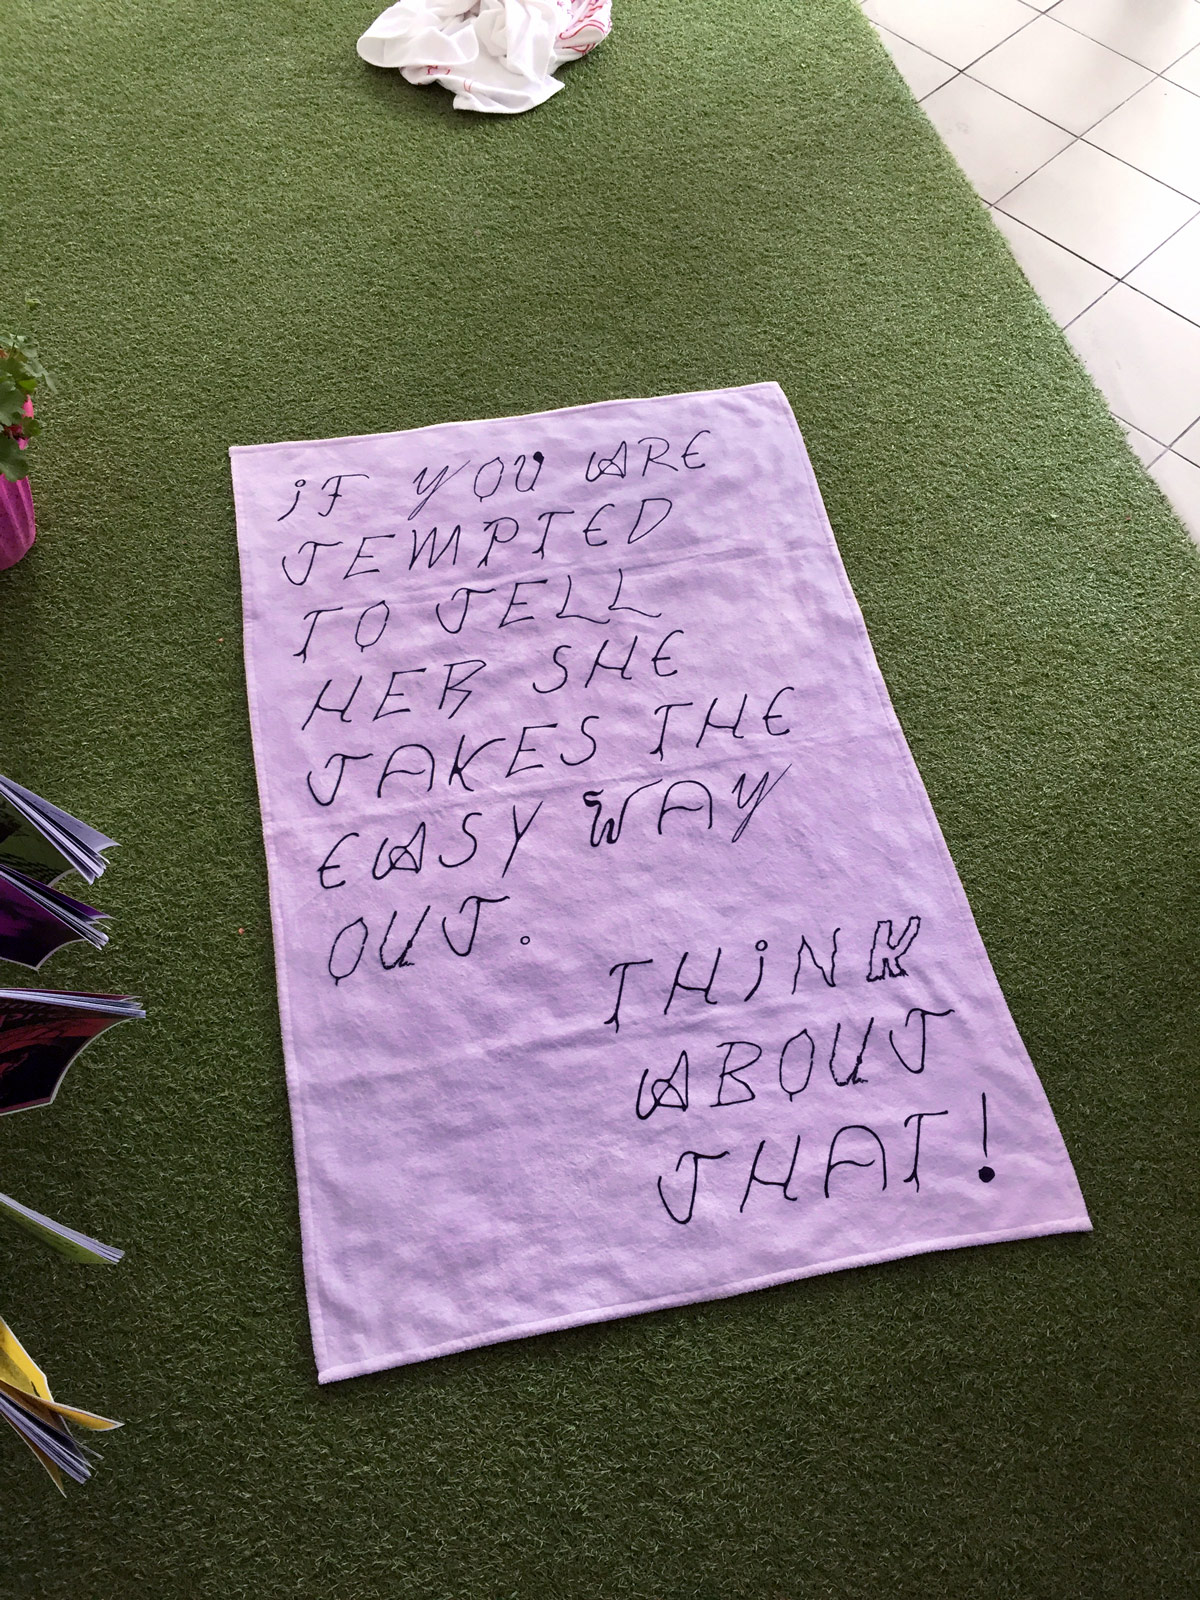 iF YOU ARE
TEMPTED
TO TELL
HER SHE
TAKES THE
EASY WAY
OUT.
THiNK
ABOUT
THAT!